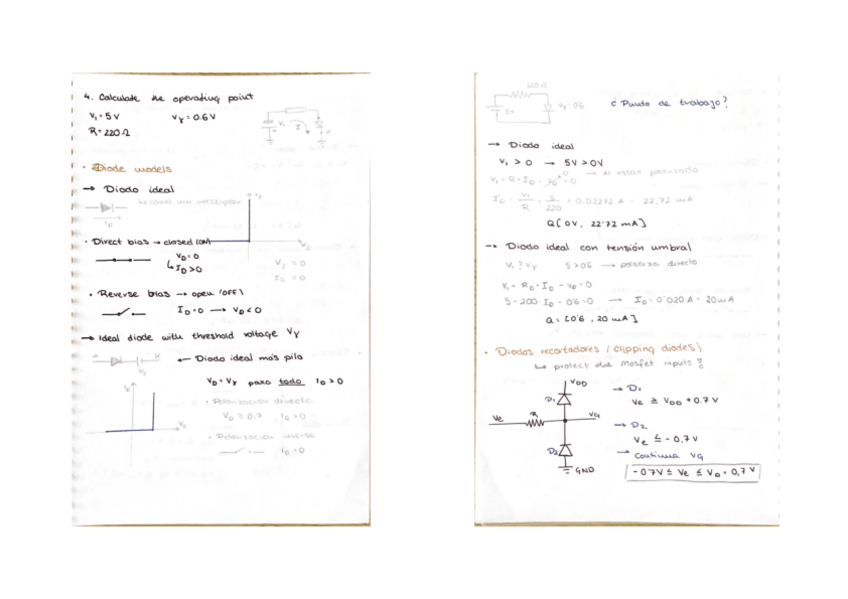 4. Calculate the operating point
V₁ = 5 V Vγ = 0.6 V
R = 220 Ω
• Diode models
→ Diodo ideal
• Direct bias → closed (on)
V_D = 0
↳ I_D > 0
V_D = 0
I_D = 0
• Reverse bias → open (off)
I_D = 0 → V_D < 0
→ Ideal diode with threshold voltage Vγ
← Diodo ideal más pila
V_D = Vγ para todo I_D > 0
• Polarización directa
V_D = 0.7 I_D > 0
• Polarización inversa
I_D = 0
220 Ω
5V
Vγ = 0.6
¿Punto de trabajo?
→ Diodo ideal
V₁ > 0 → 5V > 0V
V₁ - R · I_D - V_D = 0
I_D = V₁/R = 5/220 = 0.02272 A = 22,72 mA
Q [0V, 22'72 mA]
→ Diodo ideal con tensión umbral
V₁ ? Vγ 5 > 0.6 → polariza directo
V₁ - R_D · I_D - V_D = 0
5 - 200 · I_D - 0'6 = 0 → I_D = 0'020 A = 20 mA
Q = [0'6, 20 mA]
• Diodos recortadores (clipping diodes)
↳ protect the Mosfet inputs
VDD
D₁
Ve R VG
D₂
GND
→ D₁
Ve ≥ V_DD + 0,7 V
→ D₂
Ve ≤ - 0,7 V
→ Continua VG
- 0'7V ≤ Ve ≤ V_D + 0,7 V